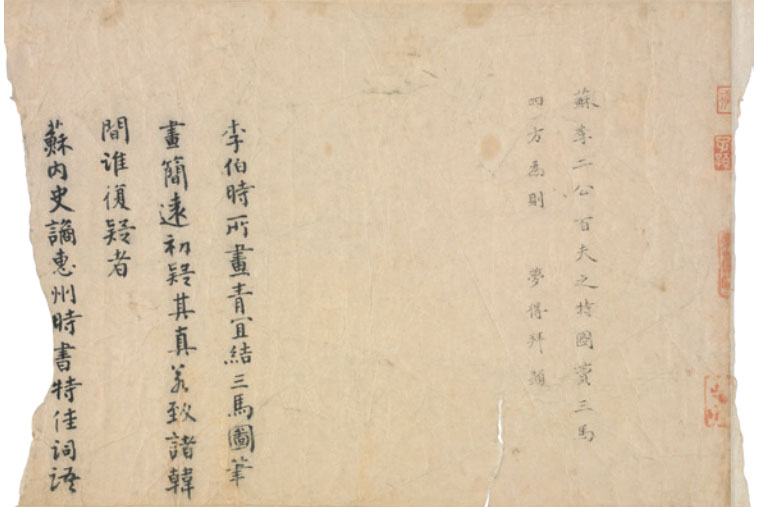 蘇李二公百夫之特圖賛三馬
四方為則 夢得拜題
李伯時所畫青宜結三馬圖筆
畫簡遠初疑其真若致諸韓
間誰復疑者
蘇内史謫惠州時書特佳詞語